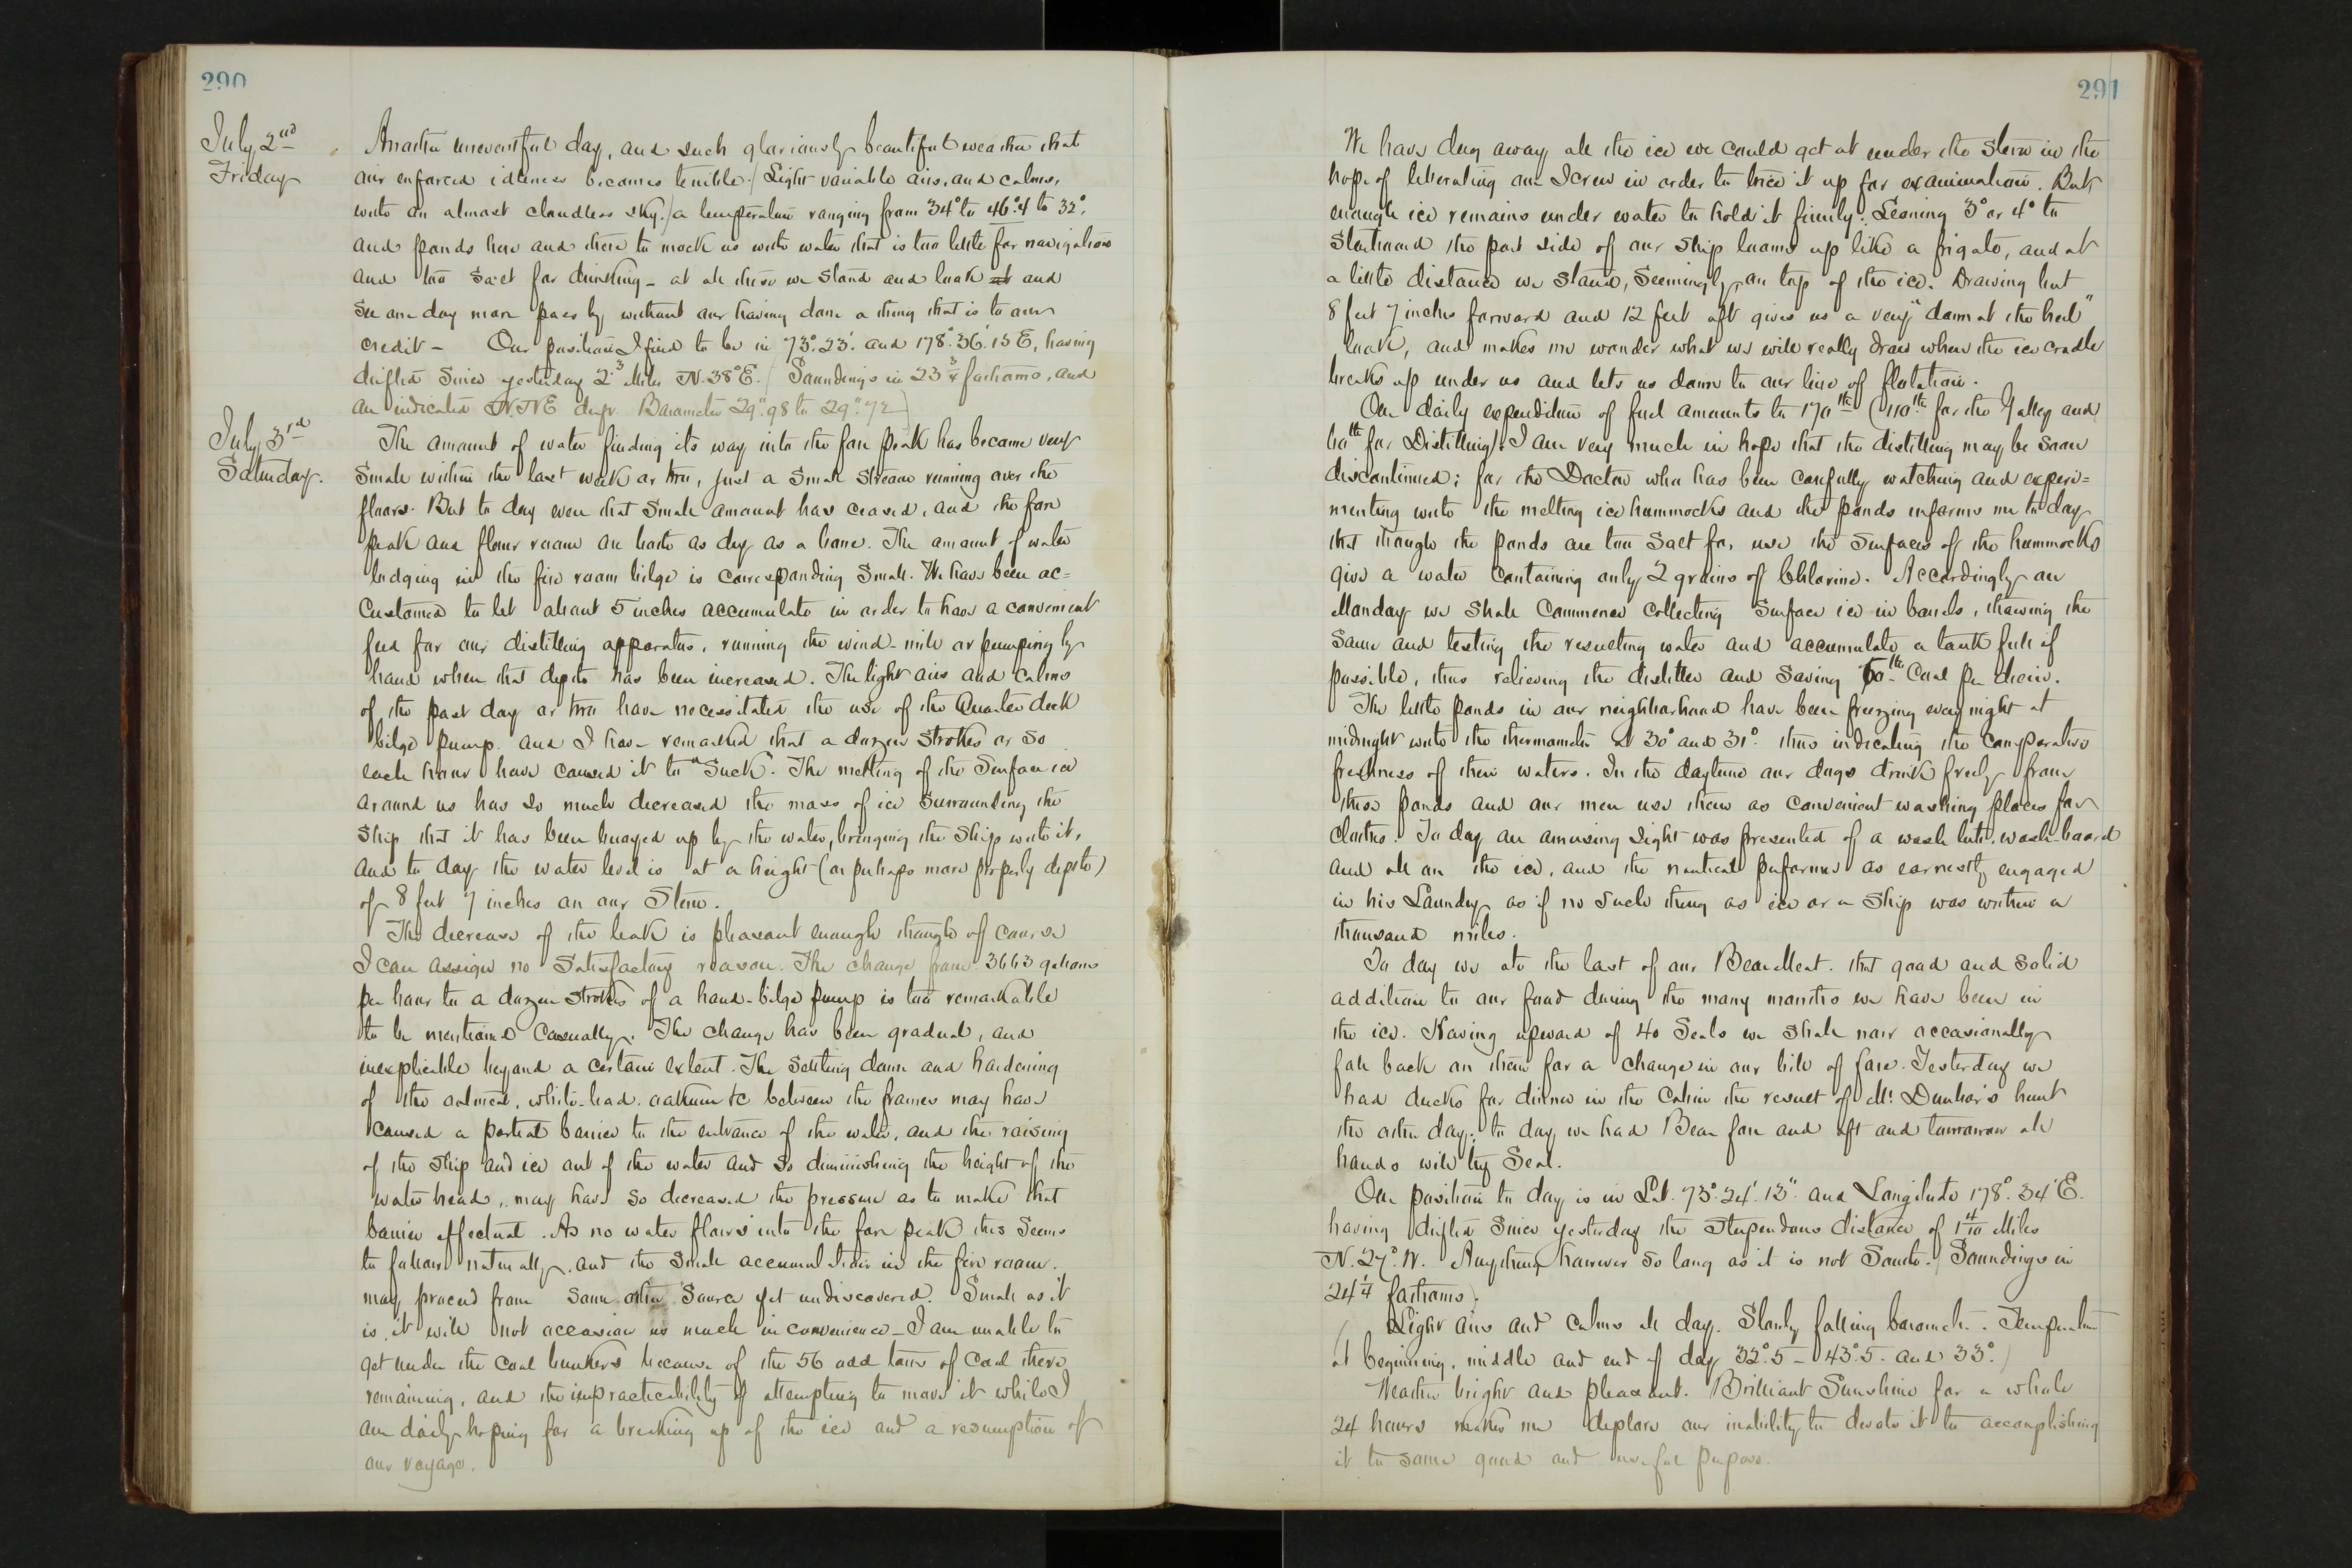 290
July 2nd
Friday
Another uneventful day, and such gloriously beautiful weather that
our enforced idleness becomes terrible. / Light variable airs, and calms,
with an almost cloudless sky. / a temperature ranging from 34° to 46°.4 to 32°,
and ponds here and there to mock us with water that is too little for navigation
and too salt for drinking - at all these we stand and look at and
see one day more pass by without our having done a thing that is to our
credit - Our position I find to be in 73°.23'. and 178°.36'.15 E, having
drifted since yesterday 2.3 Miles N. 38° E. / Soundings in 23 3/4 fathoms, and
an indicated N.NE drift. Barometer 29".98 to 29".92 )
July 3rd
Saturday.
The amount of water finding its way into the fore peak has become very
small within the last week or two, just a small stream running over the
floors. But to day even that small amount has ceased, and the fore
peak and flour room are both as dry as a bone. The amount of water
lodging in the fire room bilge is corresponding small. We have been ac=
customed to let about 5 inches accumulate in order to have a convenient
feed for our distilling apparatus, running the wind-mill or pumping by
hand when that depth has been increased. The light airs and calms
of the past day or two have necessitated the use of the Quarter deck
bilge pump. and I have remarked that a dozen strokes or so
each hour have caused it to "Suck". The melting of the surface ice
around us has so much decreased the mass of ice surrounding the
ship that it has been buoyed up by the water, bringing the ship with it,
and to day the water level is at a height (or perhaps more properly depth)
of 8 feet 7 inches on our Stem.
The decrease of the leak is pleasant enough though of course
I can assign no satisfactory reason. The change from 3663 gallons
per hour to a dozen strokes of a hand-bilge pump is too remarkable
to be mentioned casually. The change has been gradual, and
inexplicable beyond a certain extent. The settling down and hardening
of the oatmeal, white-lead. oakum &c between the frames may have
caused a partial barrier to the entrance of the water, and the raising
of the ship and ice out of the water and so diminishing the height of the
water head, may have so decreased the pressure as to make that
barrier effectual. As no water flows into the fore peak this seems
to follow naturally. and the small accumulation in the fire room.
may proceed from some other source yet undiscovered. Small as it
is, it will not occasion us much inconvenience - I am unable to
get under the coal bunkers because of the 56 odd tons of coal there
remaining, and the impracticability of attempting to move it while I
am daily hoping for a breaking up of the ice and a resumption of
our voyage.
291
We have dug away all the ice we could get at under the stern in the
hope of liberating our screw in order to trice it up for examination. But
enough ice remains under water to hold it firmly. Leaning 3° or 4° to
starboard the port side of our ship looms up like a frigate, and at
a little distance we stand, seemingly, on top of the ice. Drawing but
8 feet 7 inches forward and 12 feet aft gives us a very "down at the heel"
look, and makes me wonder what we will really draw when the ice cradle
breaks up under us and lets us down to our line of flotation.
Our daily expenditure of fuel amounts to 170 lb (110 lb for the Galley and
60 lb for Distilling). I am very much in hope that the distilling may be soon
discontinued; for the Doctor who has been carefully watching and experi=
menting with the melting ice hummocks and the ponds informs me to day
that though the ponds are too salt for use the surfaces of the hummocks
give a water containing only 2 grains of Chlorine. Accordingly on
Monday we shall commence collecting surface ice in barrels, thawing the
same and testing the resulting water and accumulate a tank full if
possible, thus relieving the distiller and saving 60 lb Coal per diem.
The little ponds in our neighborhood have been freezing every night at
midnight with the thermometer at 30° and 31°. thus indicating the comparative
freshness of their waters. In the daytime our dogs drink freely from
these ponds and our men use them as convenient washing places for
clothes. To day an amusing sight was presented of a wash tub, wash-board
and all on the ice, and the nautical performer as earnestly engaged
in his Laundry as if no such thing as ice or a ship was within a
thousand miles.
To day we ate the last of our Bear Meat. that good and solid
addition to our food during the many months we have been in
the ice. Having upward of 40 Seals we shall now occasionally
fall back on them for a change in our bill of fare. Yesterday we
had ducks for dinner in the Cabin the result of Mr. Dunbar's hunt
the other day; to day we had Bear fore and aft and tomorrow all
hands will try Seal.
Our position to day is in Lat. 73°.24'.13". and Longitude 178°.34' E.
having drifted since yesterday the stupendous distance of 1 4/10 Miles
N. 27°. W. Anything however so long as it is not South. / Soundings in
24 1/4 fathoms).
Light airs and calms all day. Slowly falling barometer. Temperature
at beginning, middle and end of day 32°.5 - 43°.5. and 33°. )
Weather bright and pleasant. Brilliant Sunshine for a whole
24 hours makes me deplore our inability to devote it to accomplishing
it to some good and useful purpose.